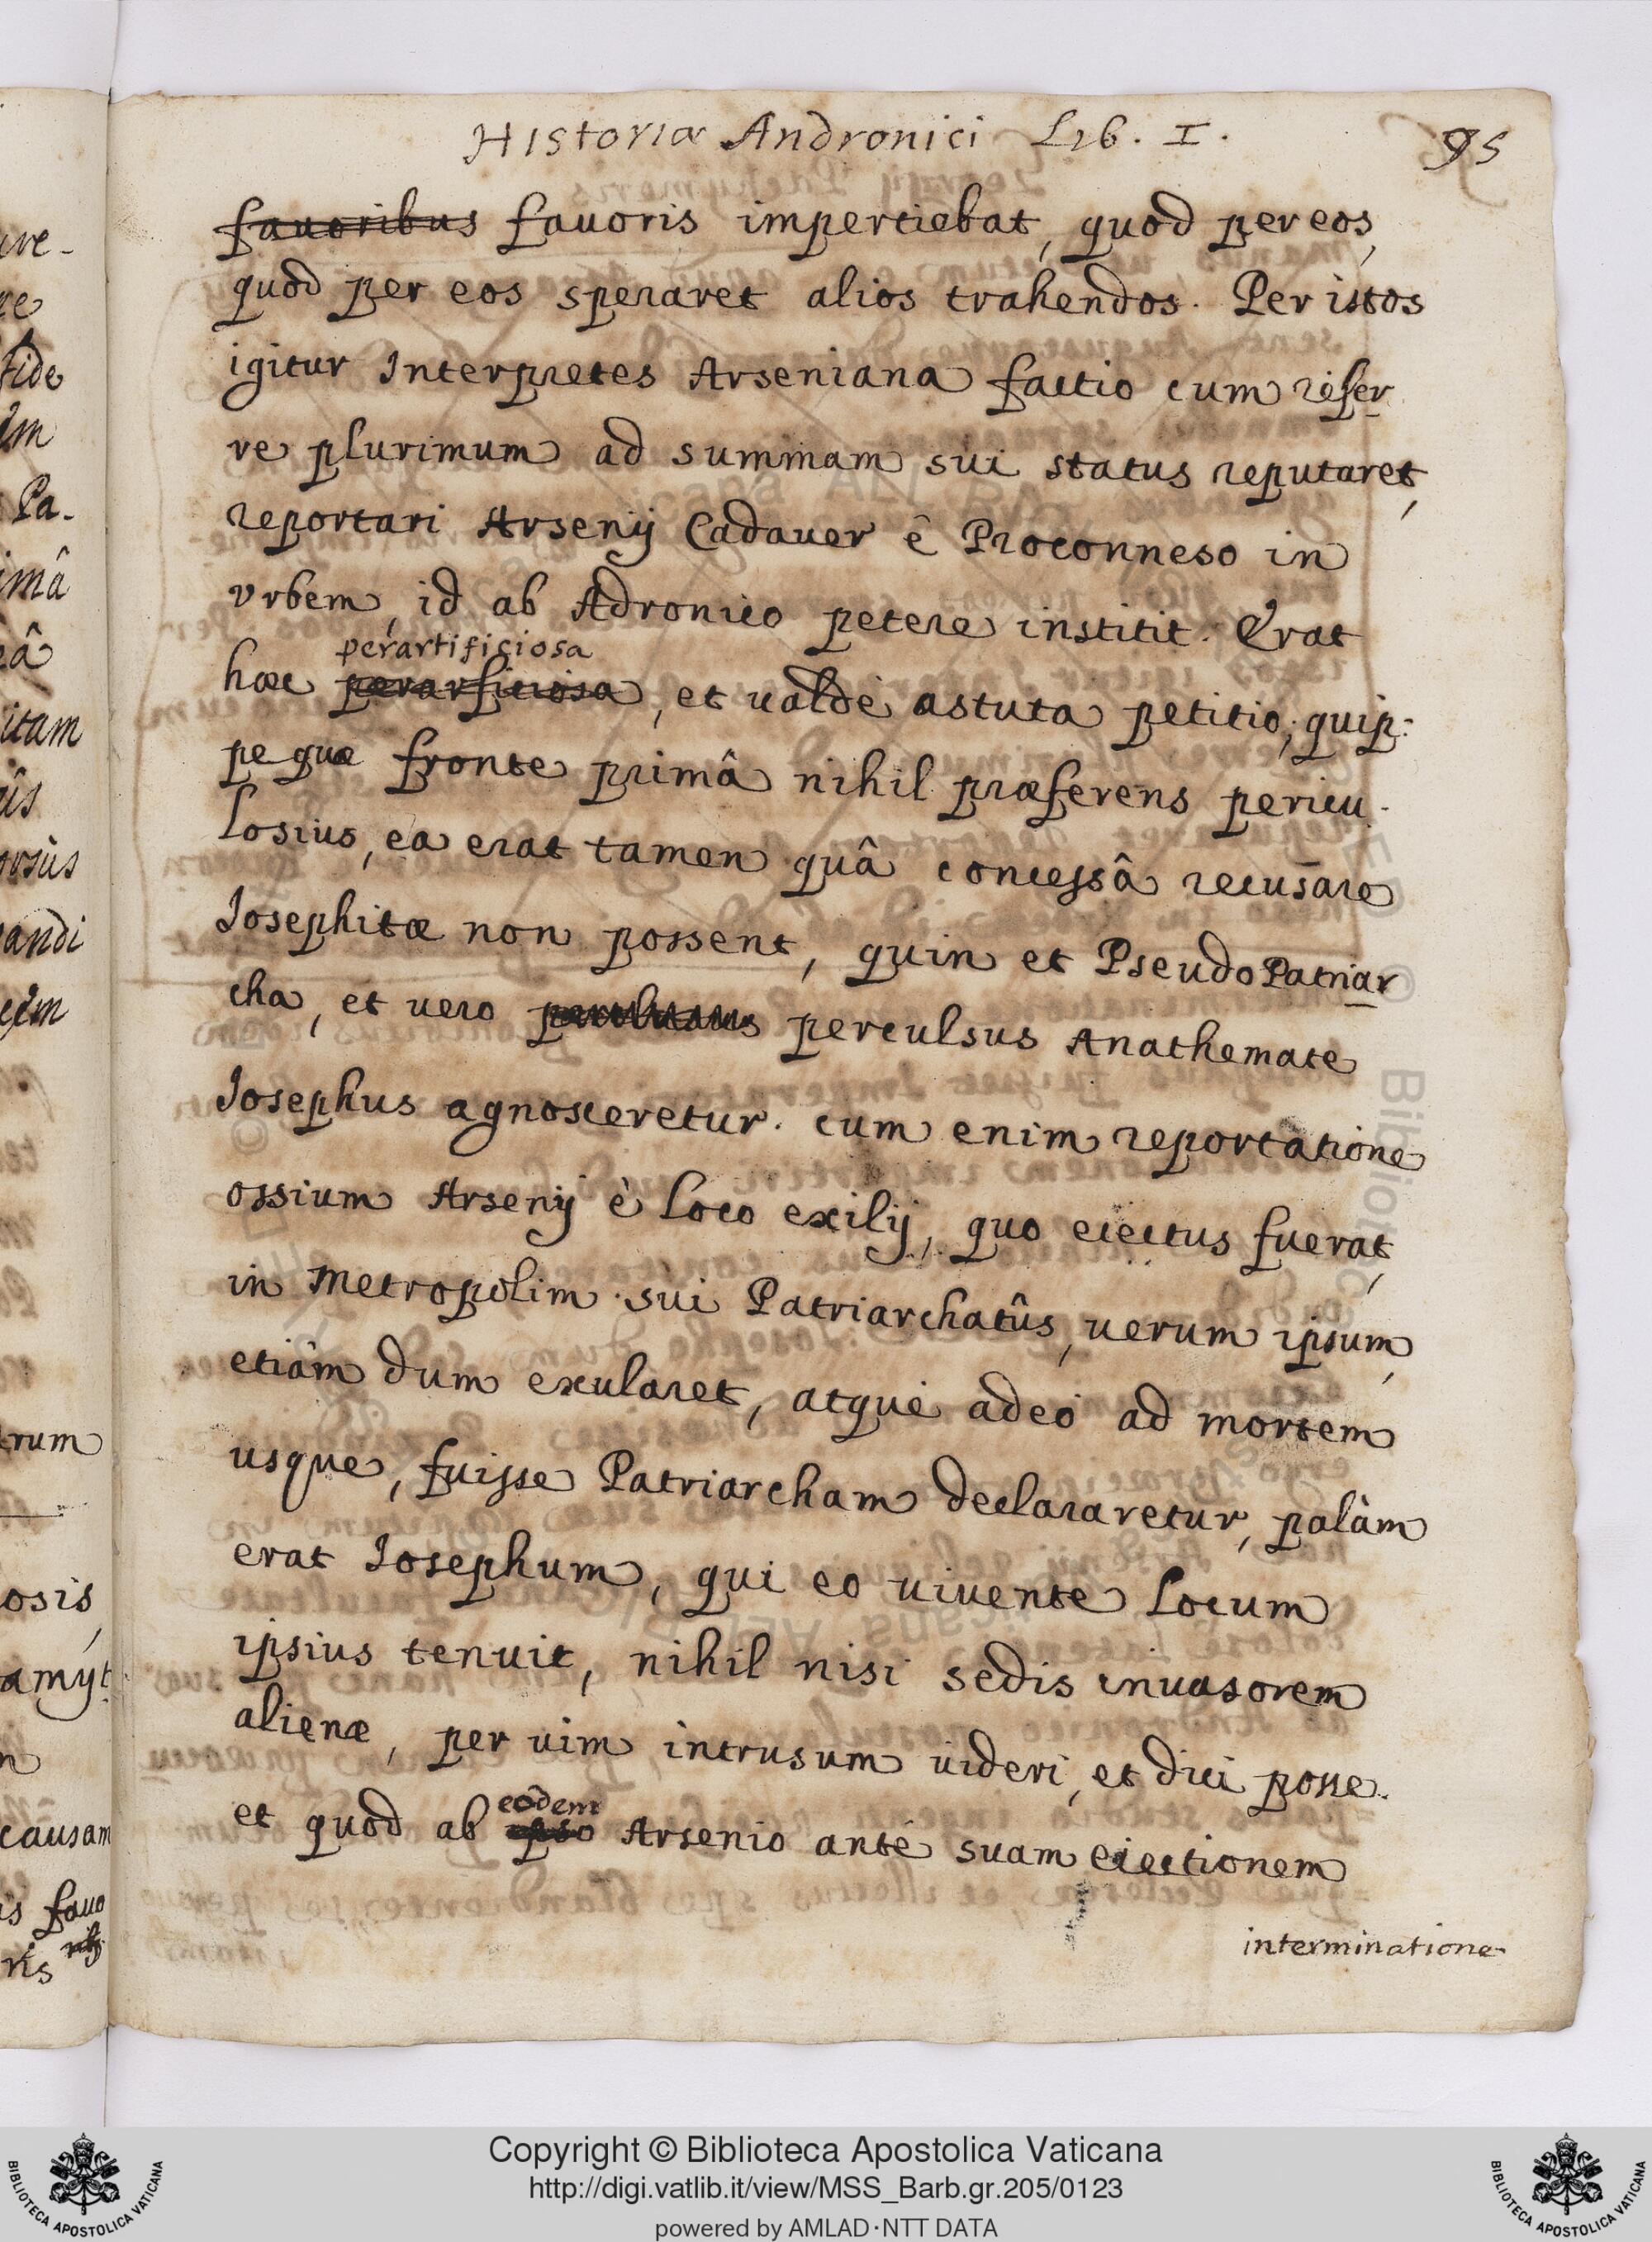 Historiæ Andronici Lib. I.
95
fauoribus fauoris impertiebat, quod per eos,
quod per eos speraret alios trahendos. Per istos
igitur Interpretes Arseniana factio cum refer
re plurimum ad summam sui status reputaret,
reportari Arsenij Cadauer è Proconneso in
vrbem, id ab Adronico petere institit. Erat
perartificiosa
hæc perarficiosa, et ualdè astuta petitio, quip:
pe quæ fronte primâ nihil præferens pericu.
losius, ea erat tamen quâ concessâ recusare
Iosephitæ non possent, quin et PseudoPatriar
cha, et uero perculsus Anathemate
Iosephus agnosceretur. cum enim reportatione
ossium Arsenij è loco exilij, quo eiectus fuerat,
in Metropolim sui Patriarchatûs, uerum ipsum,
etiam dum exularet, atque adeo ad mortem
usque, fuisse Patriarcham declararetur, palàm
erat Iosephum, qui eo uiuente locum
ipsius tenuit, nihil nisi sedis inuasorem
alienæ, per uim intrusum uideri, et dici posse.
eodem
et quod ab ipso Arsenio antè suam eiectionem
interminatione
ure-
re
fide
Pa.
imâ
eâ
itam
ûs
orsùs
andi
trum
osis,
amyt
n
causam
is fauo
ris
Copyright © Biblioteca Apostolica Vaticana
http://digi.vatlib.it/view/MSS_Barb.gr.205/0123
powered by AMLAD·NTT DATA
BIBLIOTECA APOSTOLICA VATICANA
BIBLIOTECA APOSTOLICA VATICANA